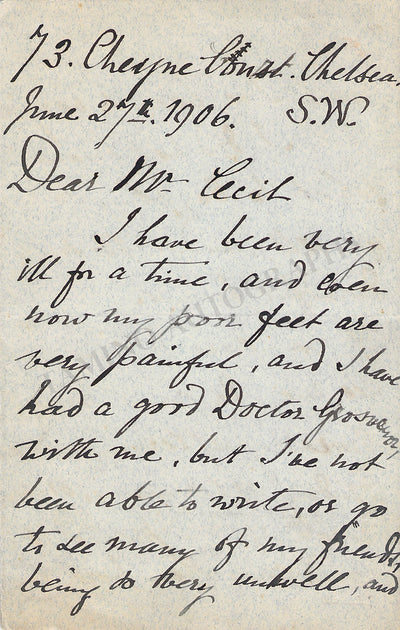 73. Cheyne Court. Chelsea.
June 27th. 1906. S.W.
Dear Mr Cecil
I have been very
ill for a time, and even
now my poor feet are
very painful, and I have
had a good Doctor Grosvenor
with me, but I've not
been able to write, or go
to see many of my friends,
being so very unwell, and